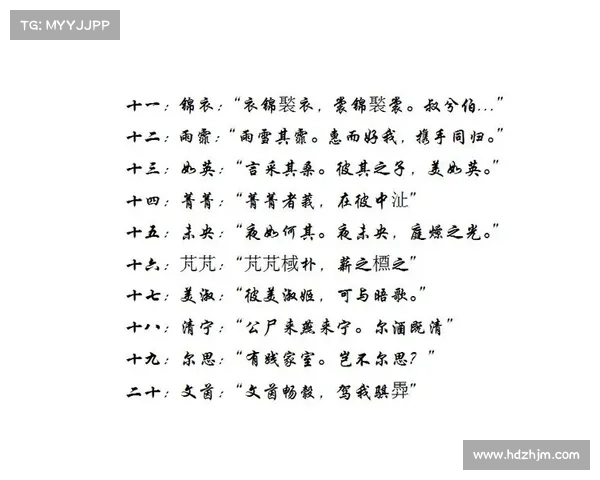 TG: MYYJJPP
十一：锦衣：“衣锦褧衣，裳锦褧裳。叔兮伯...”
十二：雨霏：“雨雪其霏。惠而好我，携手同归。”
十三：如英：“言采其桑。彼其之子，美如英。”
十四：菁菁：“菁菁者莪，在彼中沚”
十五：未央：“夜如何其。夜未央，庭燎之光。”
十六：芃芃：“芃芃棫朴，薪之槱之”
十七：美淑：“彼美淑姬，可与晤歌。”
十八：清宁：“公尸来燕来宁。尔酒既清”
十九：尔思：“有践家室。岂不尔思？”
二十：文茵：“文茵畅毂，驾我骐馵”
www.hdzhjm.com